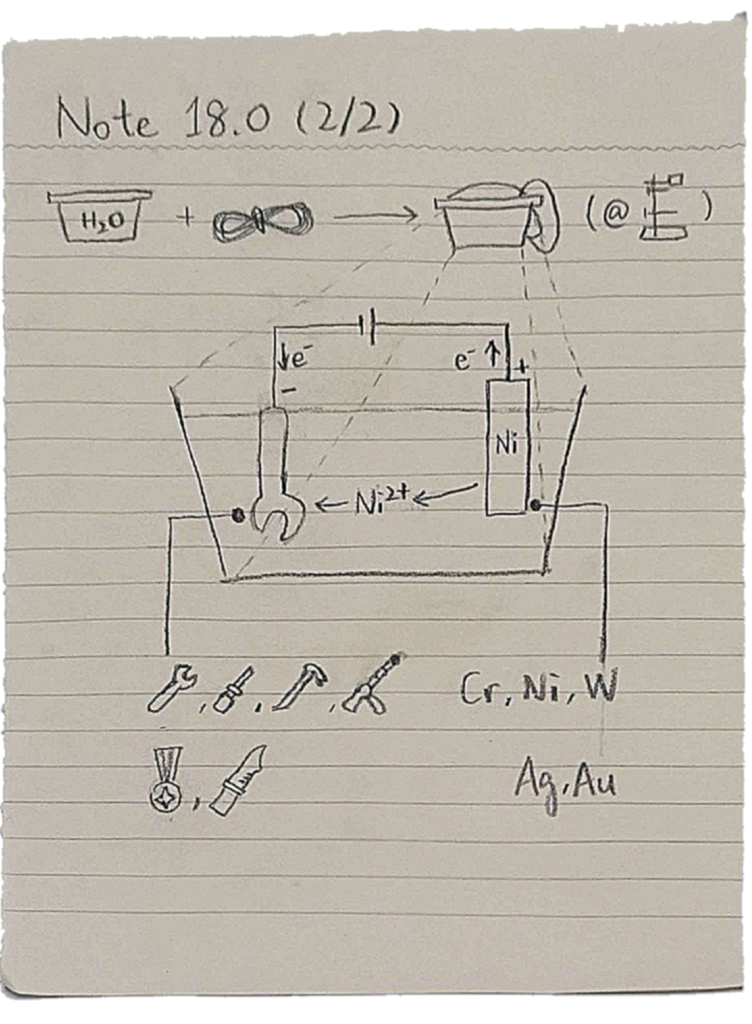 Note 18.0 (2/2)
H₂O + → (@ )
e⁻ e⁻
− +
Ni
Ni²⁺
, , , Cr, Ni, W
, Ag, Au